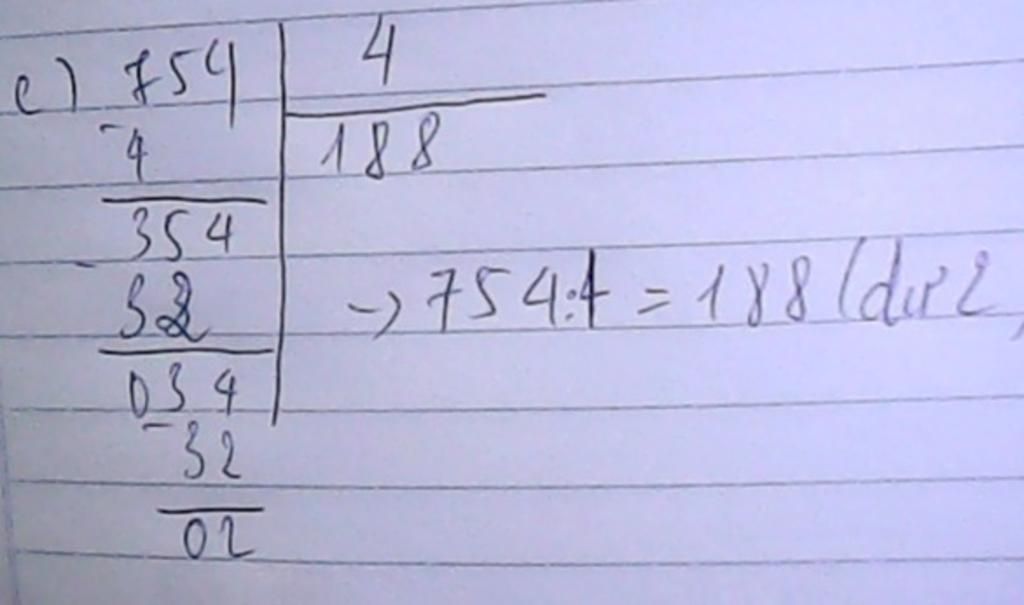 e) 754 | 4
- 4 | 188
354
- 32
034
- 32
02
-> 754:4 = 188 (dư 2